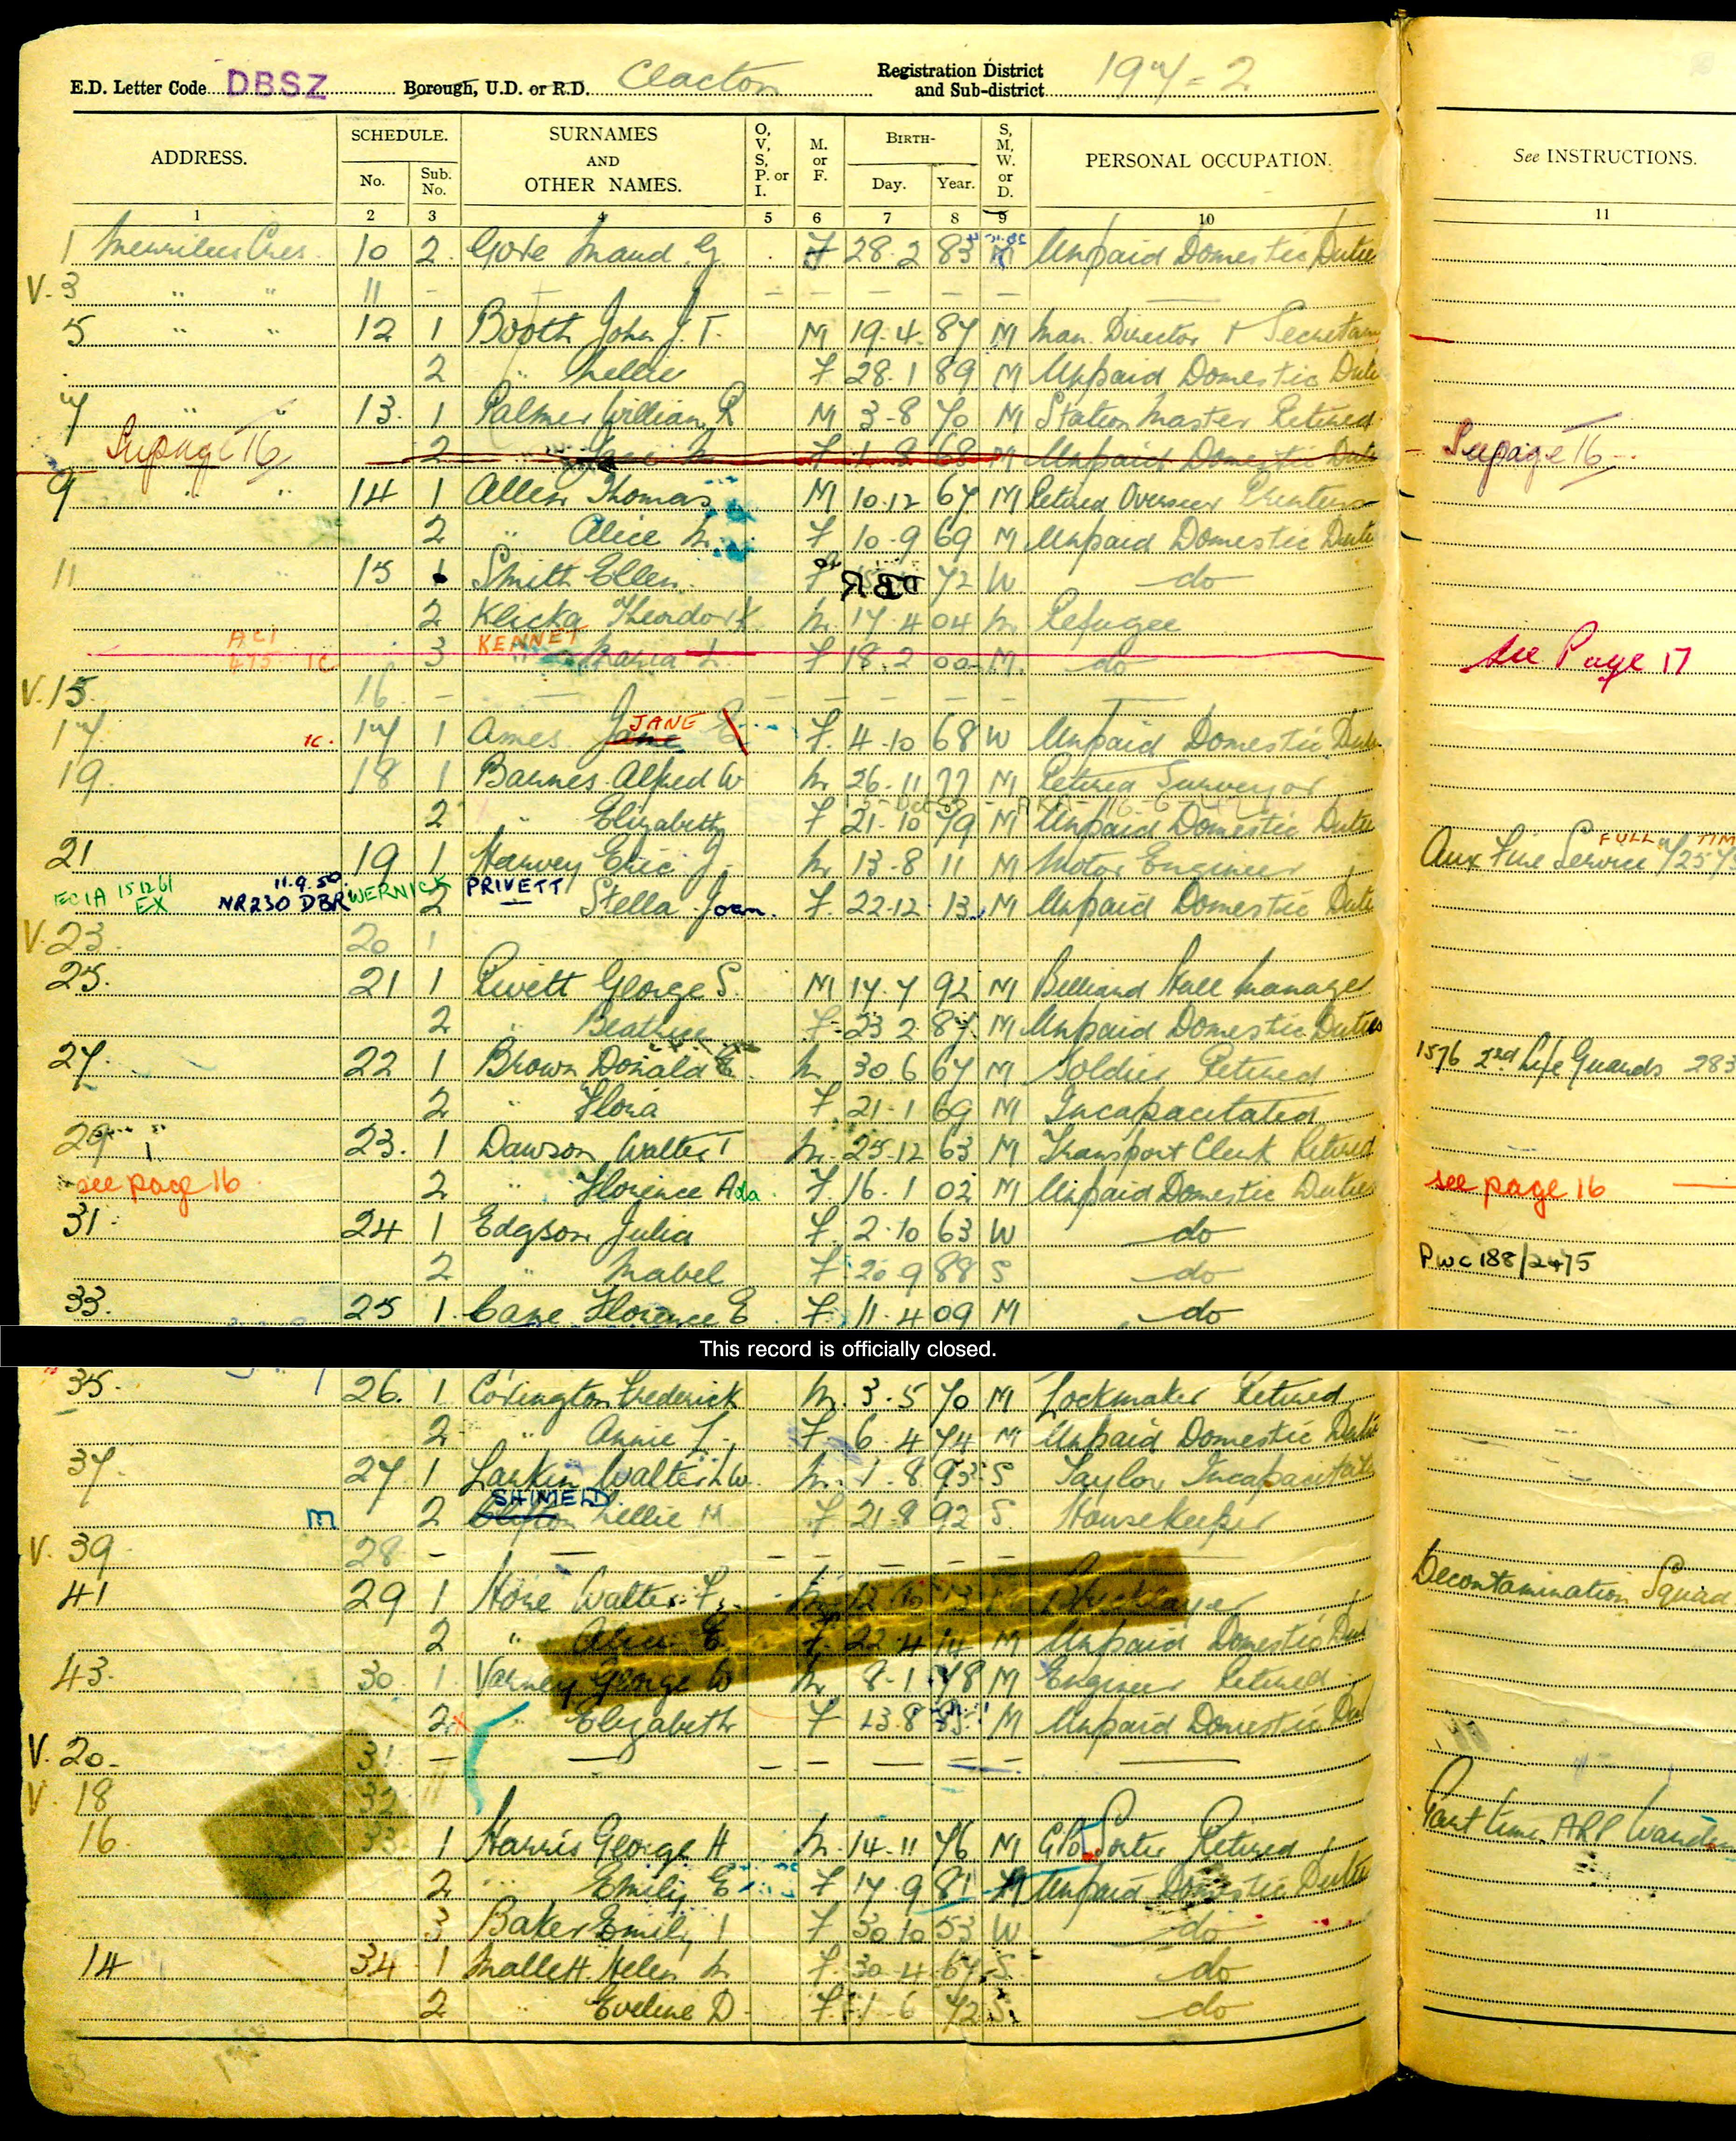 E.D. Letter Code DBSZ Borough, U.D. or R.D. Clacton Registration District and Sub-district 197-2
ADDRESS. SCHEDULE. No. Sub. No. SURNAMES AND OTHER NAMES. O, V, S, P. or I. M. or F. BIRTH- Day. Year. S, M, W. or D. PERSONAL OCCUPATION. See INSTRUCTIONS.
1 2 3 4 5 6 7 8 9 10 11
1 Cres. 10 2 Gore Maud G F 28.2 83 M Unpaid Domestic Duties
V. 3 " " 11 - - - - - -
5 " " 12 1 Booth John J. T. M 19.4 87 M Man. Director & Secretary
2 " Nellie F 28.1 89 M Unpaid Domestic Duti
7 " " 13. 1 Palmer William R M 3-8 70 M Station Master Retired
See page 16 2 " Jane M F 1-8 68 M Unpaid Domestic Duti See page 16
9 " " 14 1 Allen Thomas M 10.12 67 M Retired Overseer Printers
2 " Alice M. F 10-9 69 M Unpaid Domestic Duti
11 " " 15 1 Smith Ellen. F 72 W do
2 Klicka Theodor K M. 17.4 04 M. Refugee
3 KENNET " Maria L. F 18.2 00 M. do see Page 17
V. 15. 16 - - - - - -
17. 1c. 17 1 Ames Jane JANE E. F. 4-10 68 W Unpaid Domestic Duti
19. 18 1 Barnes Alfred W M 26.11 77 M Retired Surveyor
2 " Elizabeth F 21-10 79 M Unpaid Domestic Duti
21 19 1 Harvey Eric J. M 13-8 11 M Motor Engineer Aux Fire Service FULL TIM
ECIA 151261 EX 11.9.50 NR230 DBR WERNICK 2 PRIVETT Stella Joan. F. 22.12 13 M Unpaid Domestic Duti
V. 23. 20 1
25. 21 1 Rivett George S. M 17.7 92 M Billiard Hall Manager
2 " Beatrice F 23 2 87 M Unpaid Domestic Duties
27. 22 1 Brown Donald E. M. 30.6 67 M Soldier Retired 1576 2nd Life Guards 283
2 " Flora F. 21-1 69 M Incapacitated
29 23. 1 Dawson Walter T M. 25-12 63 M Transport Clerk Retired
see page 16 2 " Florence Ada F. 16.1 02 M Unpaid Domestic Duties see page 16
31. 24 1 Edgson Julia F. 2.10 63 W do
2 " Mabel F 20 9 88 S do PWC 188/2475
33. 25 1. Cane Florence E F. 11.4 09 M do
This record is officially closed.
35. 26. 1 Covington Frederick M. 3.5 70 M Lockmaker Retired
2 " Annie L. F 6.4 74 M Unpaid Domestic Duti
37. 27 1 Larkin Walter L W. M. 1.8 93 S Taylor Incapacitate
m 2 SHIMELD. Clifton Nellie M F 21-8 92 S. Housekeeper
V. 39 28 - - - - - -
41 29 1 Hone Walter F. M 12 10 13 Bricklayer Decontamination Squad
2 " Alice E. F. 22.4 14 M Unpaid Domestic Dut
43. 30. 1 Varney George W M 8-1 78 M Engineer Retired
2 " Elizabeth F 13.8 M Unpaid Domestic Dut
V. 20. 31 - - - - - -
V. 18 32
16. 33 1 Harris George H M. 14.11 76 M GPO Sorter Retired Part time ARP Warden
2 " Emily E F 17.9 81 M Unpaid Domestic Duties
3 Baker Emily F 30.10 53 W do
14 34 1 Mallett Helen M F. 30-4 67 S. do
2 " Eveline D. F. 1 6 72 S. do